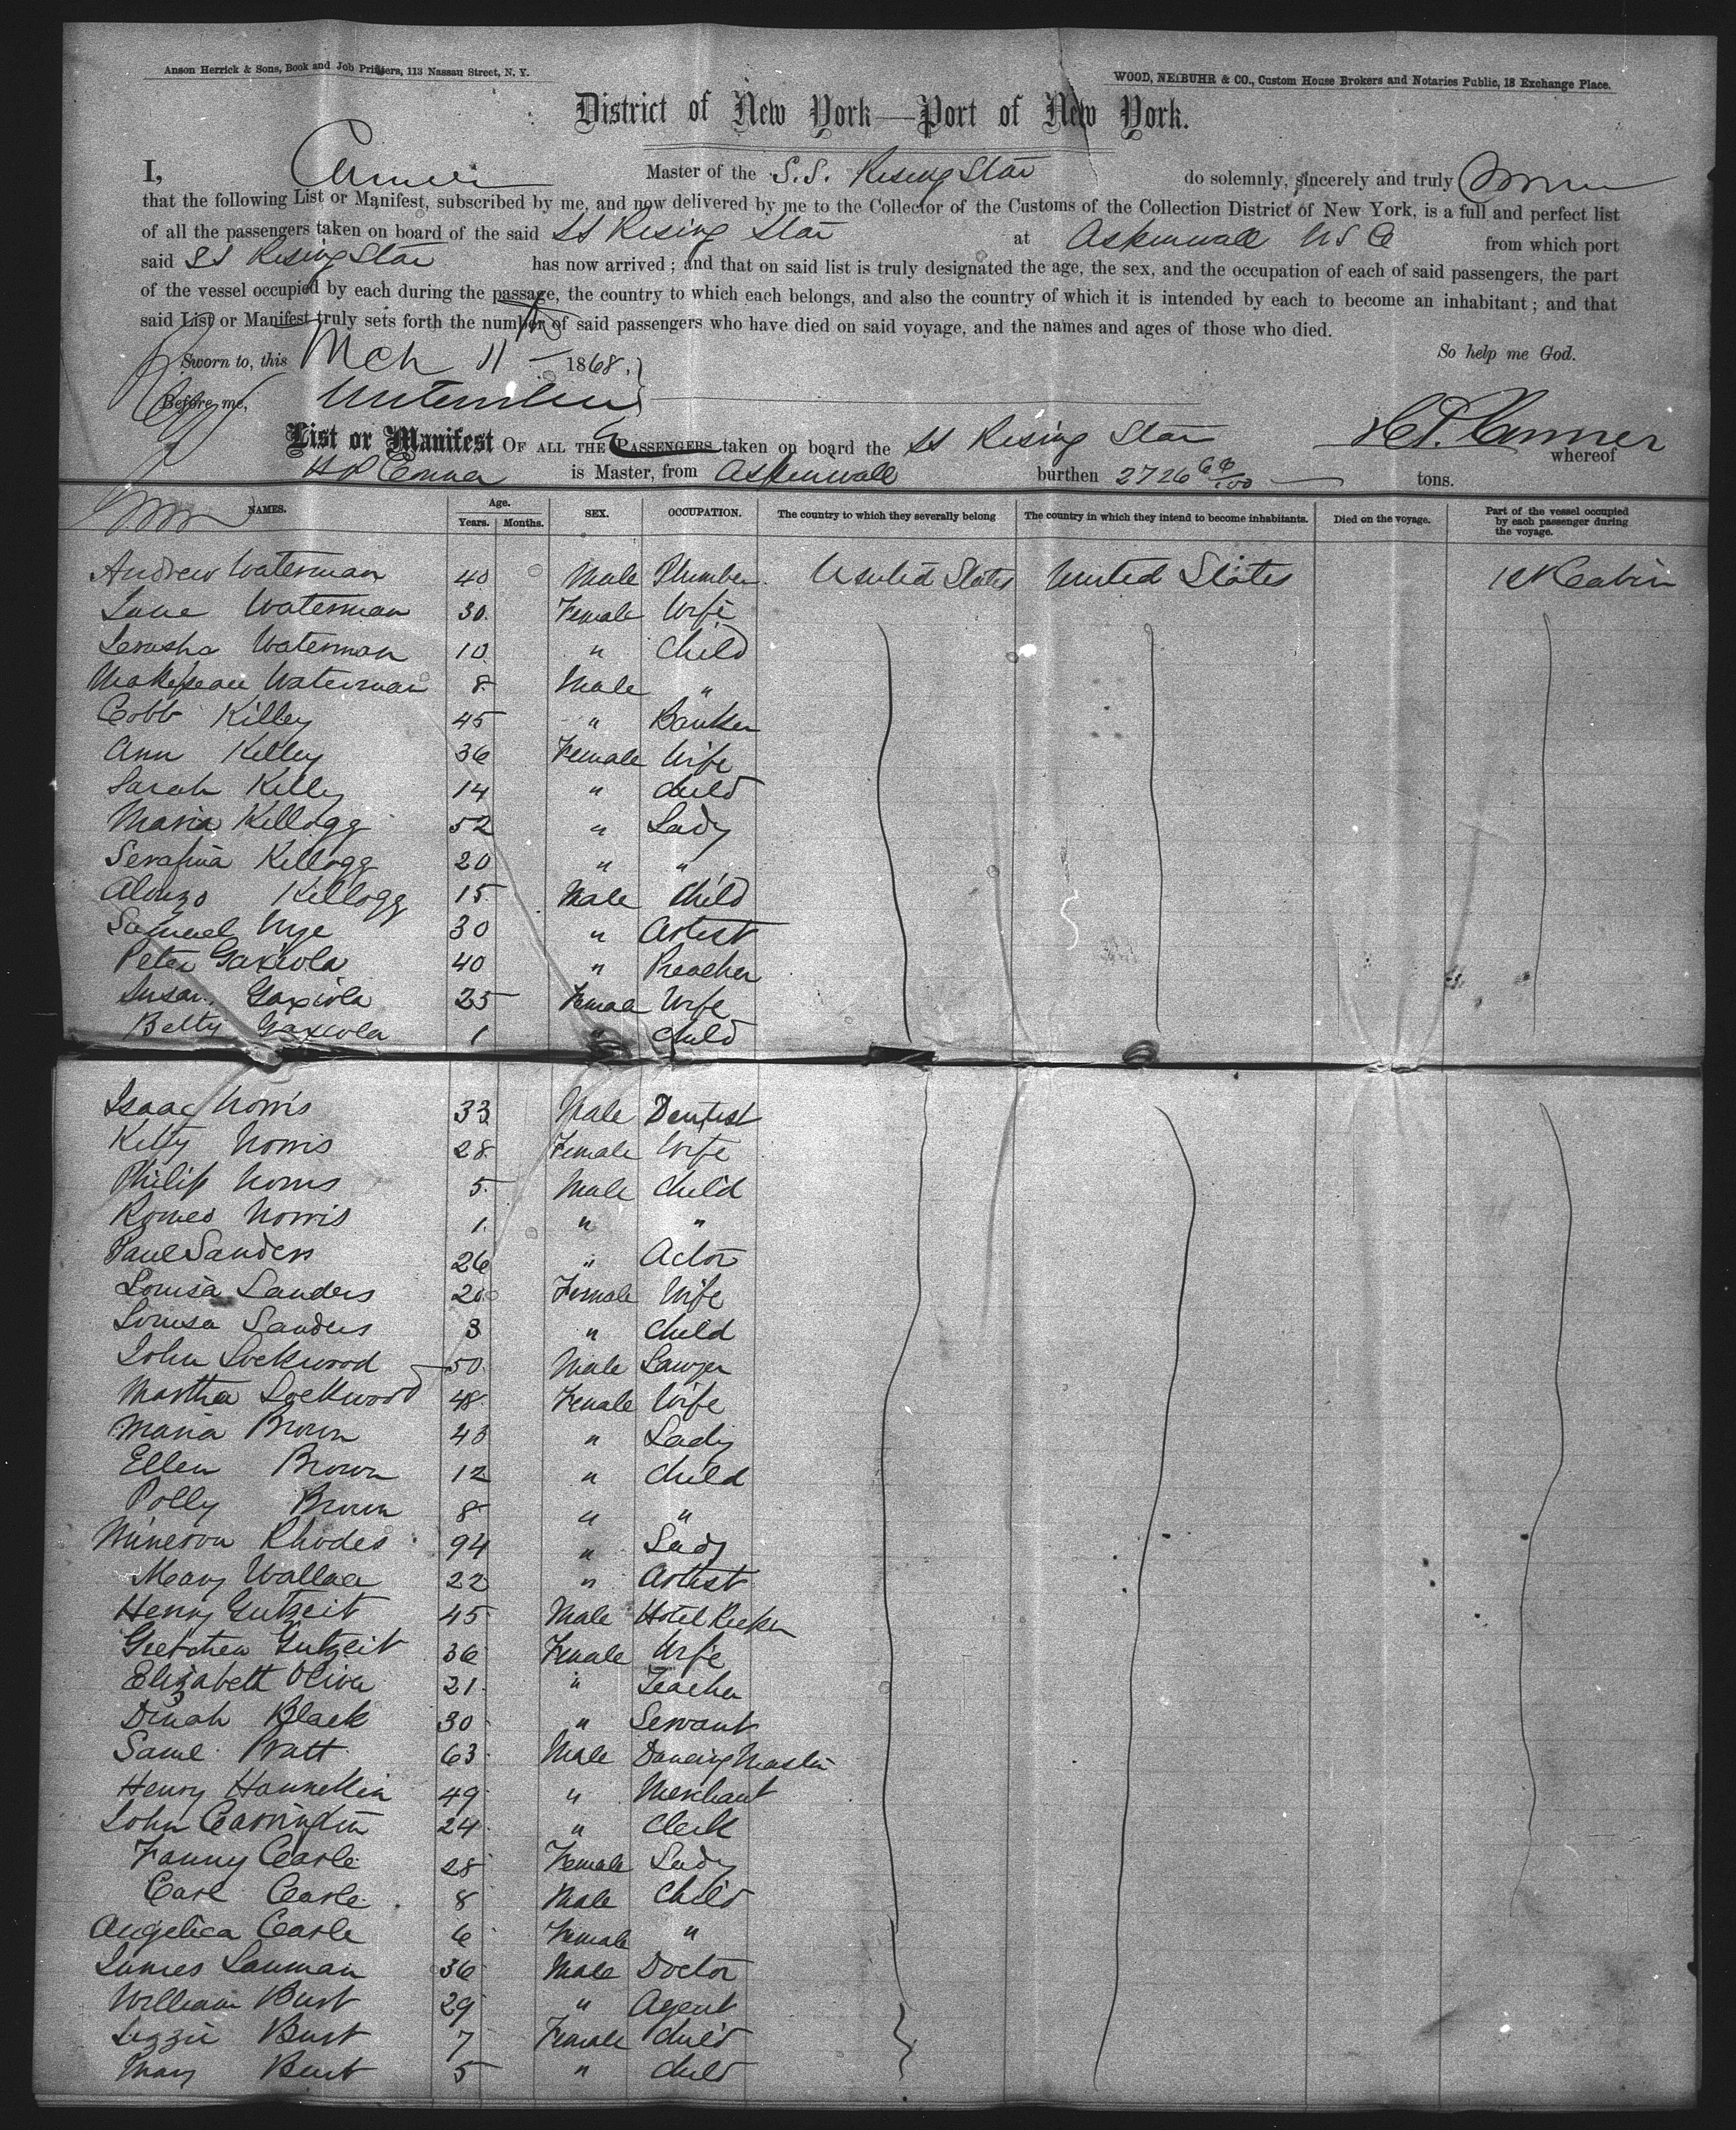 Anson Herrick & Sons, Book and Job Printers, 113 Nassau Street, N. Y.
WOOD, NEIBUHR & CO., Custom House Brokers and Notaries Public, 18 Exchange Place.
District of New York—Port of New York.
I, Master of the S.S. Rising Star do solemnly, sincerely and truly
that the following List or Manifest, subscribed by me, and now delivered by me to the Collector of the Customs of the Collection District of New York, is a full and perfect list
of all the passengers taken on board of the said SS Rising Star at Aspinwall from which port
said SS Rising Star has now arrived; and that on said list is truly designated the age, the sex, and the occupation of each of said passengers, the part
of the vessel occupied by each during the passage, the country to which each belongs, and also the country of which it is intended by each to become an inhabitant; and that
said List or Manifest truly sets forth the number of said passengers who have died on said voyage, and the names and ages of those who died.
So help me God.
Sworn to, this Mch 11 1868.
Before me,
List or Manifest OF ALL THE PASSENGERS taken on board the SS Rising Star whereof
is Master, from Aspinwall burthen 2726 66/100 tons.
NAMES. Age. Years. Months. SEX. OCCUPATION. The country to which they severally belong The country in which they intend to become inhabitants. Died on the voyage. Part of the vessel occupied by each passenger during the voyage.
Andrew Waterman 40 Male Plumber United States United States 1st Cabin
Jane Waterman 30 Female Wife
Jerusha Waterman 10 " Child
Makepeace Waterman 8 Male "
Cobb Killey 45 " Banker
Ann Killey 36 Female Wife
Sarah Killy 14 " child
Maria Kellogg 52 " Lady
Serafina Kellogg 20 " "
Alonzo Kellogg 15 Male Child
Samuel Nye 30 " Artist
Peter Gaxiola 40 " Preacher
Susan Gaxiola 25 Female Wife
Betty Gaxiola 1 " Child
Isaac Norris 33 Male Dentist
Kitty Norris 28 Female Wife
Philip Norris 5 Male Child
Romeo Norris 1 " "
Paul Sanders 26 " Actor
Louisa Sanders 20 Female Wife
Louisa Sanders 3 " Child
John Lockwood 50 Male Lawyer
Martha Lockwood 48 Female Wife
Maria Brown 43 " Lady
Ellen Brown 12 " Child
Polly Brown 8 " "
Minerva Rhodes 94 " Lady
Mary Wallace 22 " Artist
Henry Gutzeit 45 Male Hotel Keeper
Gretchen Gutzeit 36 Female Wife
Elizabeth Oliver 21 " Teacher
Dinah Black 30 " Servant
Saml. Pratt 63 Male Dancing Master
Henry 49 " Merchant
John Carrington 24 " Clerk
Fanny Earle 28 Female Lady
Carl Earle 8 Male Child
Angelica Earle 6 Female "
James Lauman 36 Male Doctor
William Burt 29 " Agent
Lizzie Burt 7 Female Child
Mary Burt 5 " Child